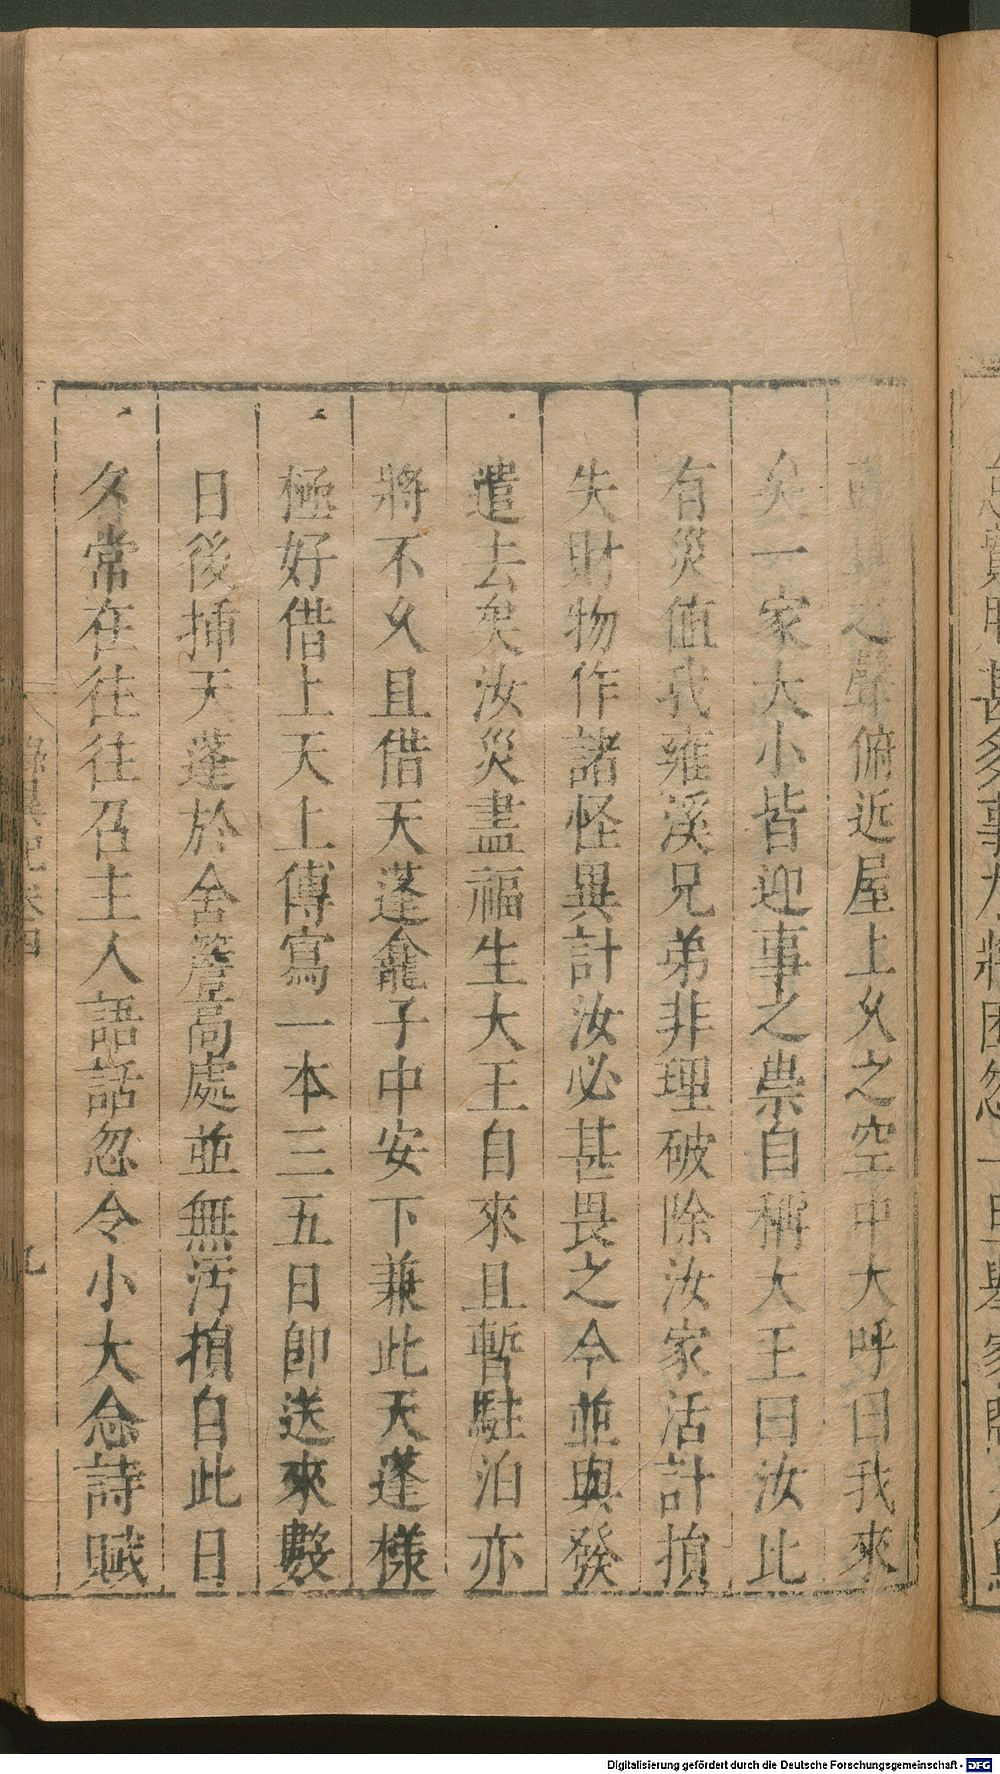 之聲俯近屋上乆之空中大呼曰我來
矣一家大小皆迎事之祟自稱大王曰汝比
有災值我雍溪兄弟非理破除汝家活計損
失財物作諸怪異計汝必甚畏之今並與發
遣去矣汝災盡福生大王自來且暫駐泊亦
將不乆且借天蓬龕子中安下兼此天蓬樣
極好借上天上傳寫一本三五日卽送來數
日後揷天蓬於舍簷高處並無汚損自此日
乆常在往往召主人語話忽令小大念詩賦
錄異記卷四
九
Digitalisierung gefördert durch die Deutsche Forschungsgemeinschaft - DFG